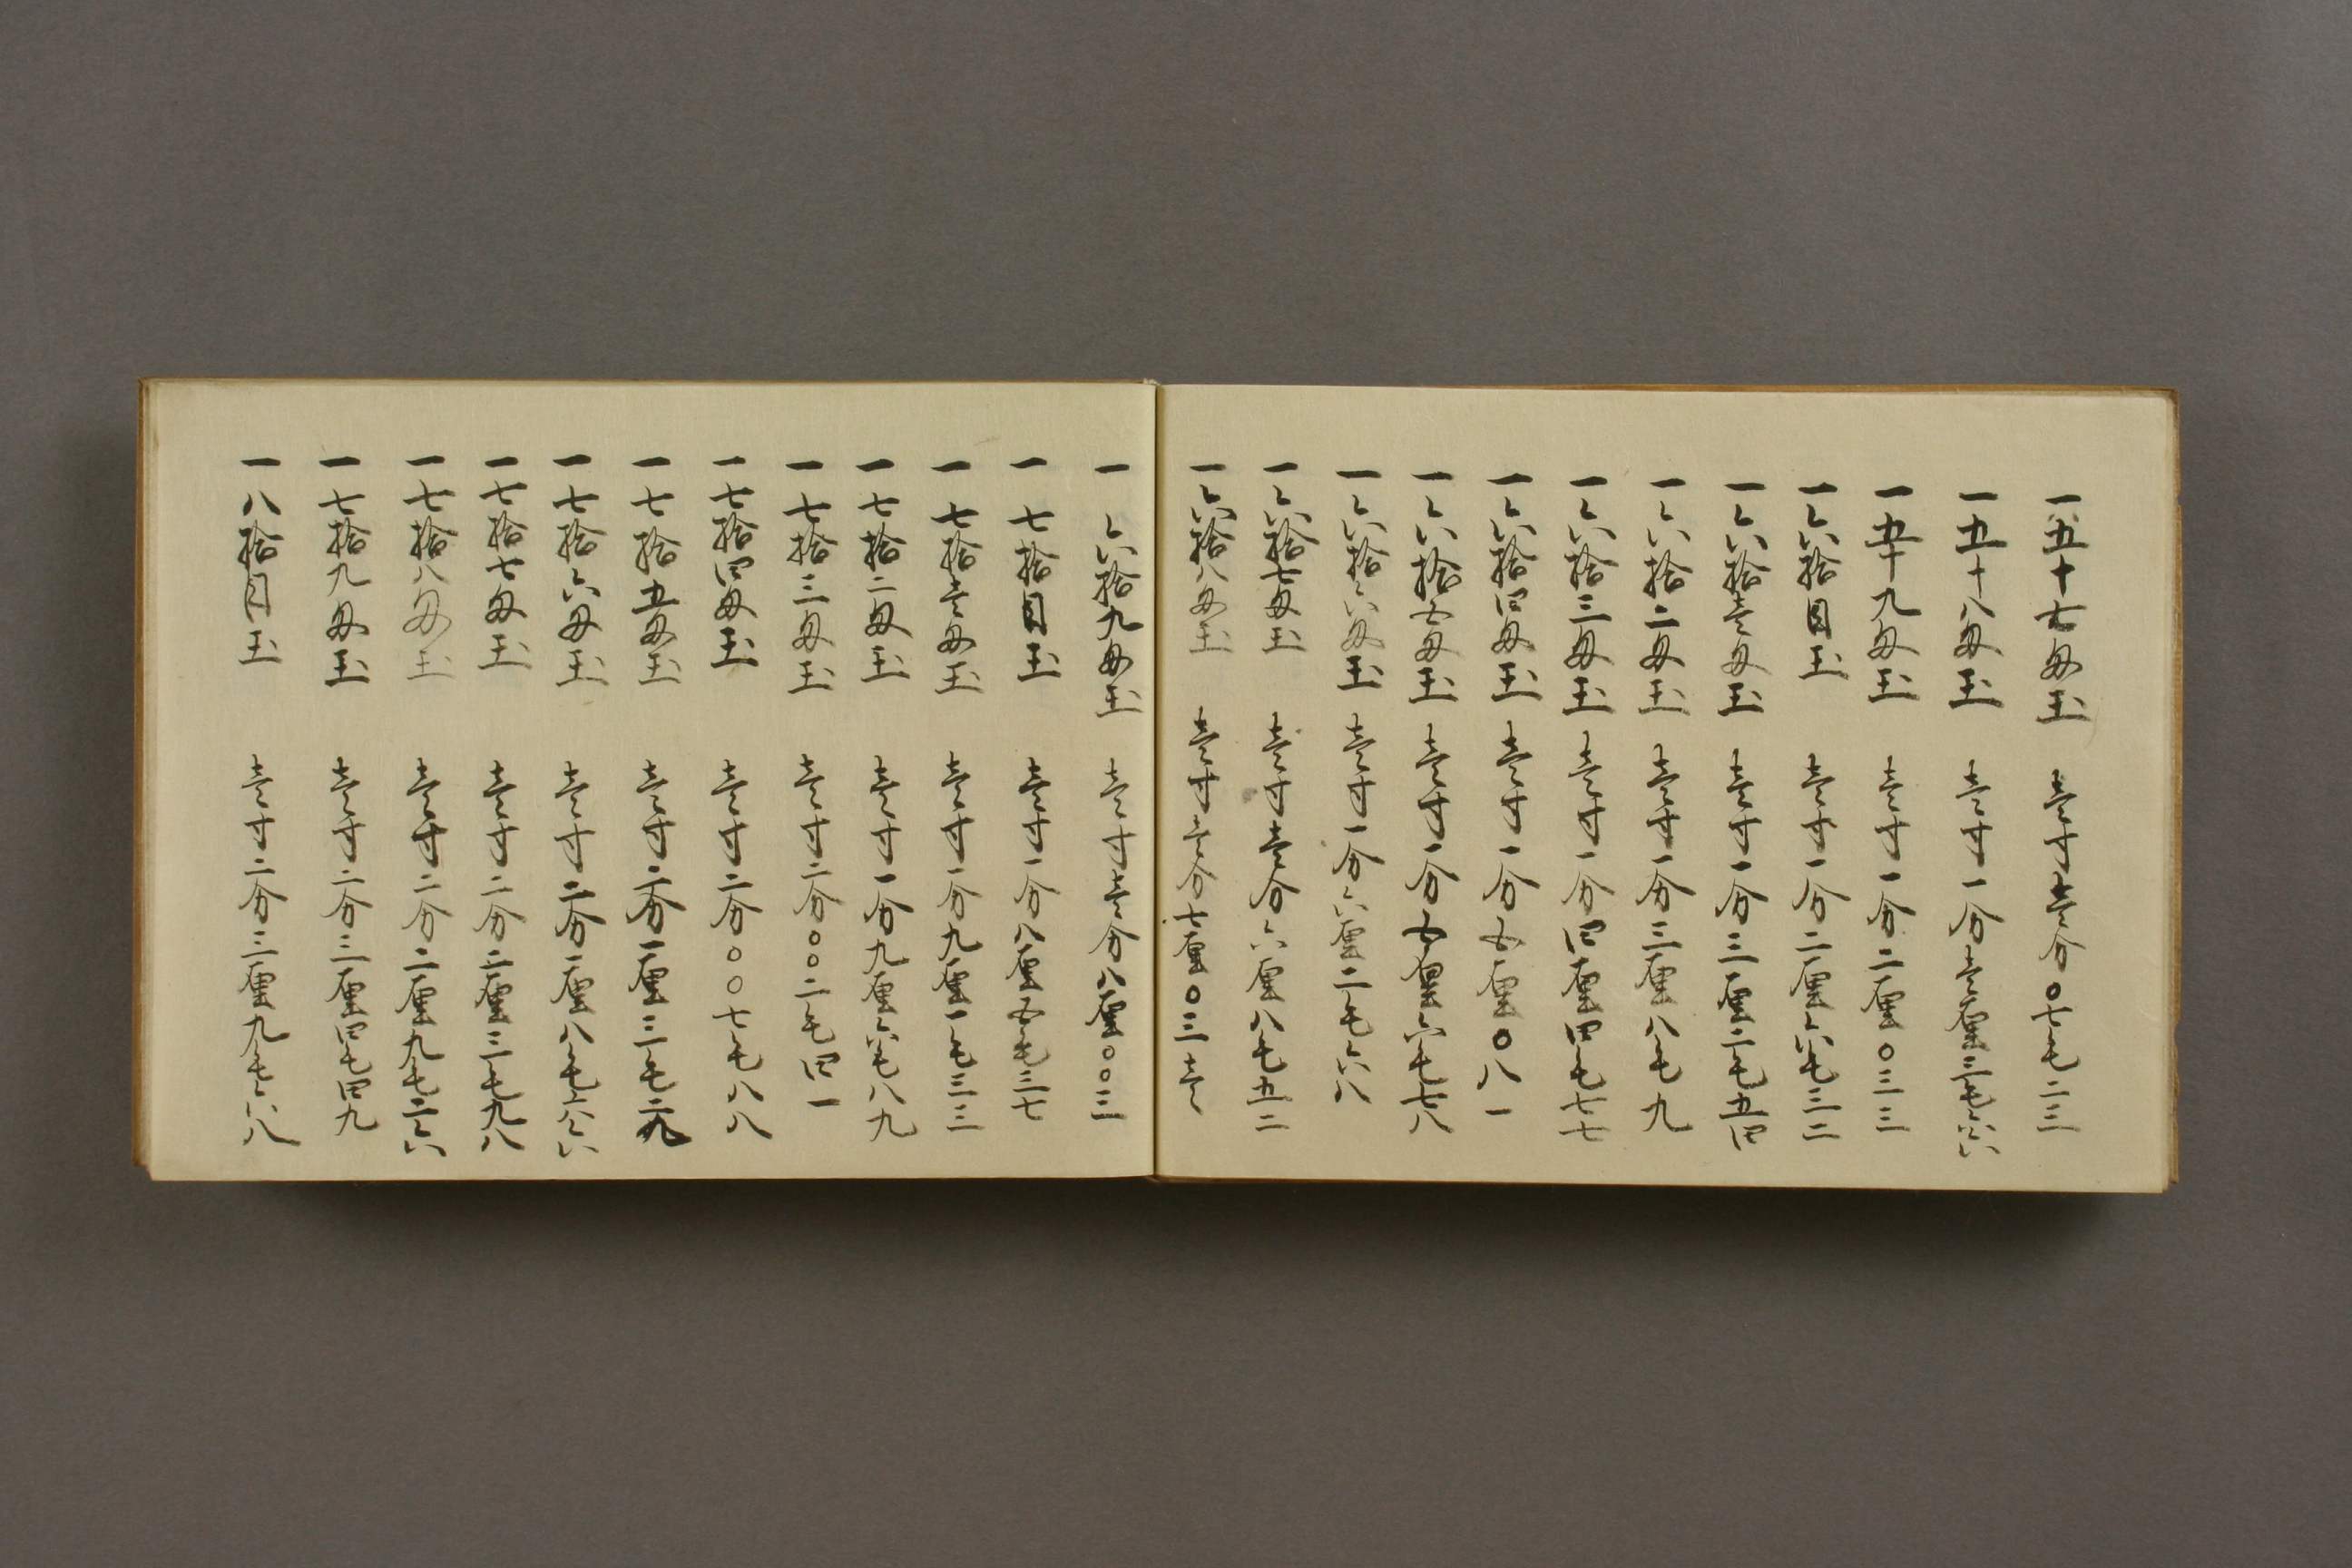 一五十七匁玉　壱寸壱分〇七毛二三
一五十八匁玉　壱寸一分壱厘三毛六六
一五十九匁玉　壱寸一分二厘〇三三
一六拾目玉　壱寸一分二厘六毛三二
一六拾壱匁玉　壱寸一分三厘二毛五四
一六拾二匁玉　壱寸一分三厘八毛九
一六拾三匁玉　壱寸一分四厘四毛七七
一六拾四匁玉　壱寸一分五厘〇八一
一六拾五匁玉　壱寸一分五厘六毛七八
一六拾六匁玉　壱寸一分六厘二毛六八
一六拾七匁玉　壱寸壱分六厘八毛五二
一六拾八匁玉　壱寸壱分七厘〇三壱
一六拾九匁玉　壱寸壱分八厘〇〇三
一七拾目玉　壱寸一分八厘五毛三七
一七拾壱匁玉　壱寸一分九厘一毛三三
一七拾二匁玉　壱寸一分九厘六毛八九
一七拾三匁玉　壱寸二分〇〇二毛四一
一七拾四匁玉　壱寸二分〇〇七毛八八
一七拾五匁玉　壱寸二分一厘三毛二九
一七拾六匁玉　壱寸二分一厘八毛六六
一七拾七匁玉　壱寸二分二厘三毛九八
一七拾八匁玉　壱寸二分二厘九毛二六
一七拾九匁玉　壱寸二分三厘四毛四九
一八拾目玉　壱寸二分三厘九毛六八